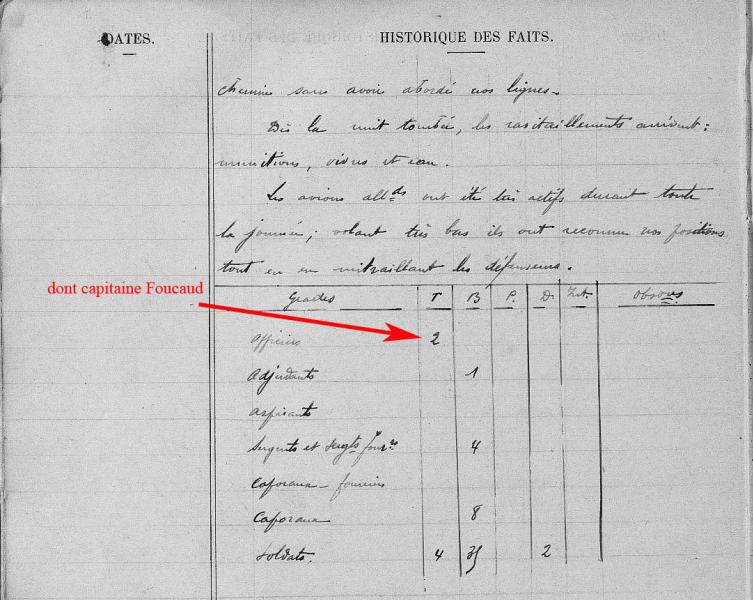 DATES.
HISTORIQUE DES FAITS.
chemin sans avoir abordé nos lignes.
Dès la nuit tombée, les ravitaillements arrivent :
munitions, vivres et eau.
Les avions all.ds ont été très actifs durant toute
la journée ; volant très bas ils ont reconnu nos positions
tout en en mitraillant les défenseurs.
dont capitaine Foucaud
Grades T B P. D.
Officiers 2
Adjudants 1
Aspirants
Sergents et Sergts four.rs 4
Caporaux - fourriers
Caporaux 8
Soldats. 4 2